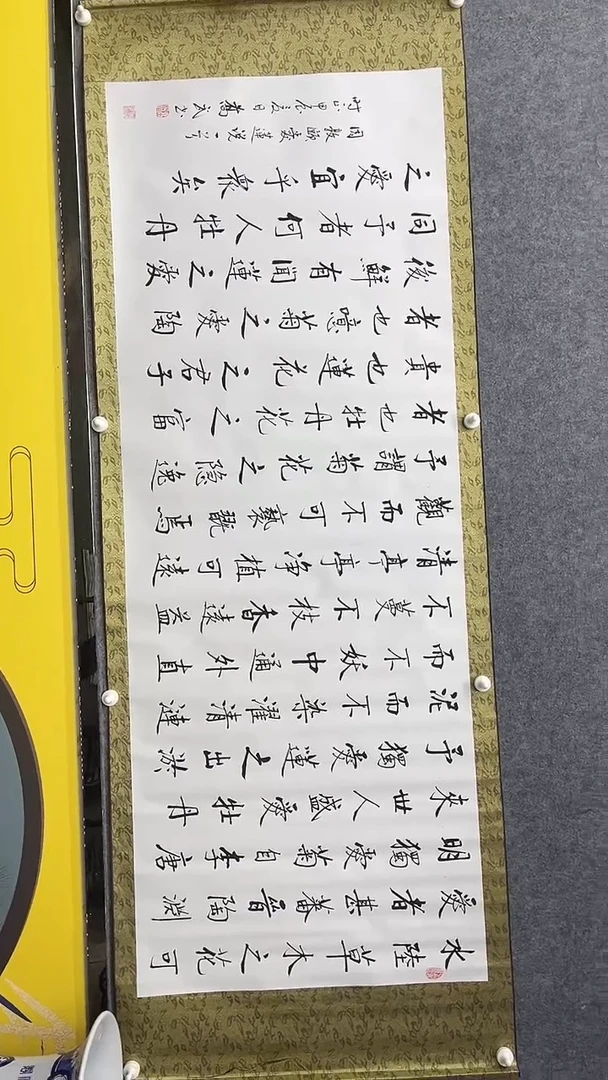 水陸草木之花可
愛者甚蕃晋陶淵
明獨愛菊自李唐
來世人盛愛牡丹
予獨愛蓮之出淤
泥而不染濯清漣
而不妖中通外直
不蔓不枝香遠益
清亭亭净植可遠
觀而不可褻翫焉
予謂菊花之隐逸
者也牡丹花之富
貴也蓮花之君子
者也噫菊之愛陶
後鮮有聞蓮之愛
同予者何人牡丹
之愛宜乎衆矣
周敦颐愛蓮説一首
甲辰夏日